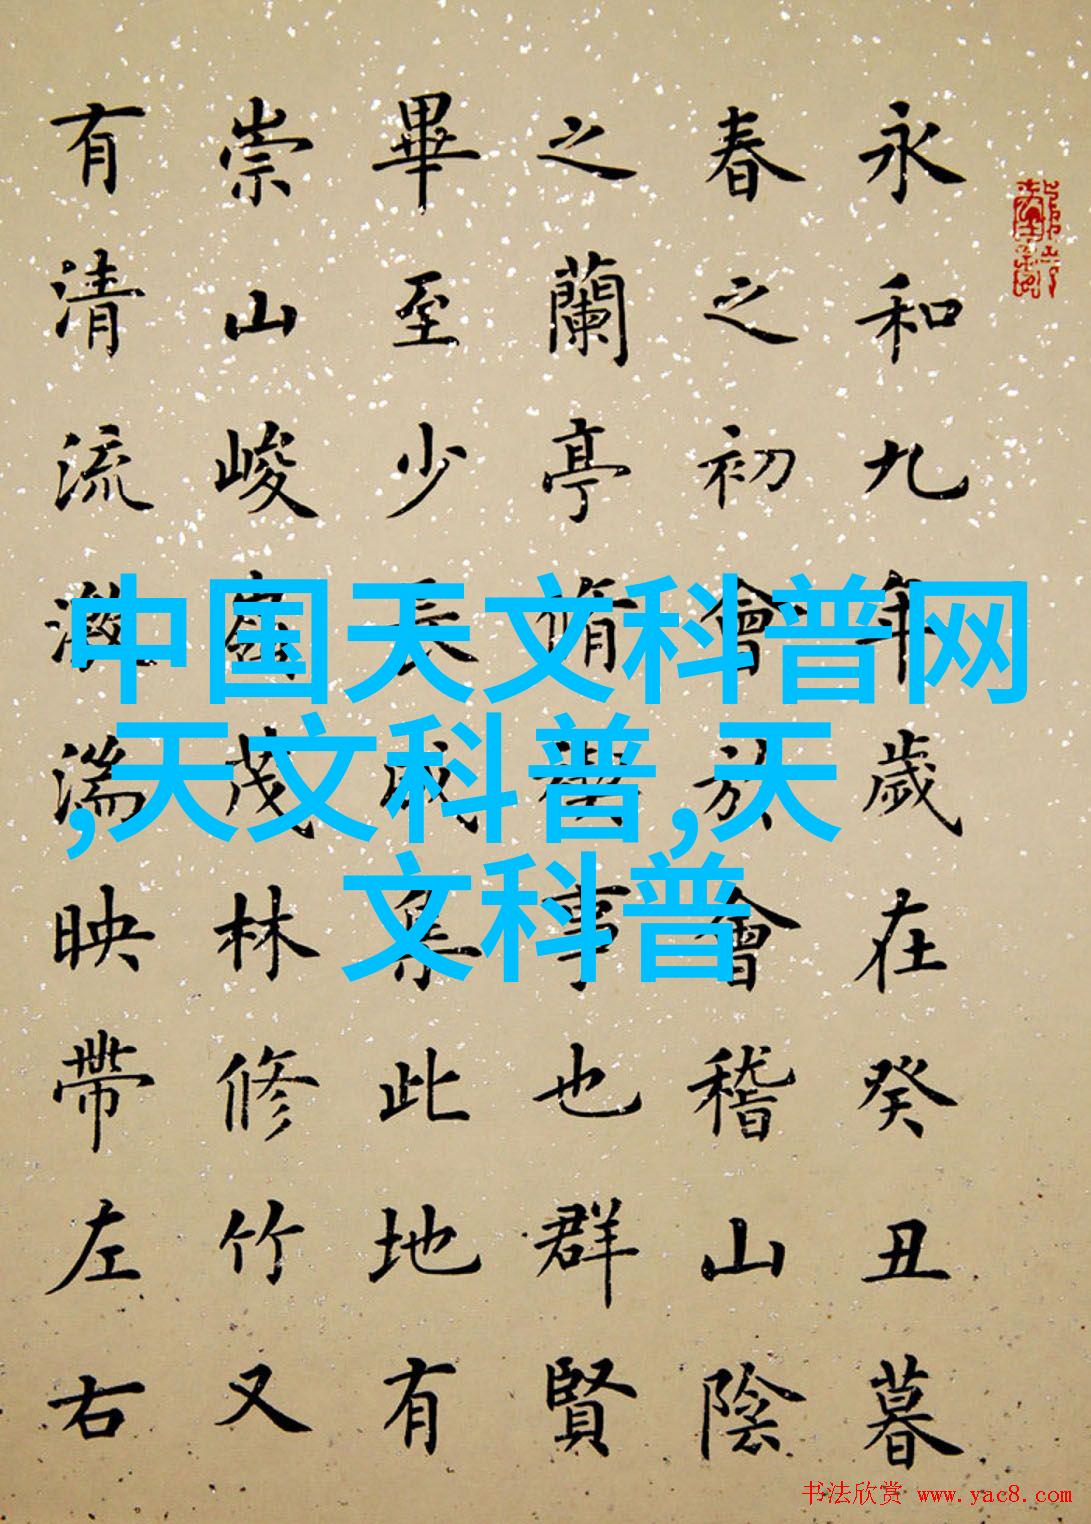 永和九年歲在癸丑暮
春之初會於會稽山陰
之蘭亭脩禊事也群賢
畢至少長咸集此地有
崇山峻嶺茂林修竹又
有清流激湍映帶左右
中国天文科普网
,天文科普,天
文科普
书法欣赏 www.yac8.com